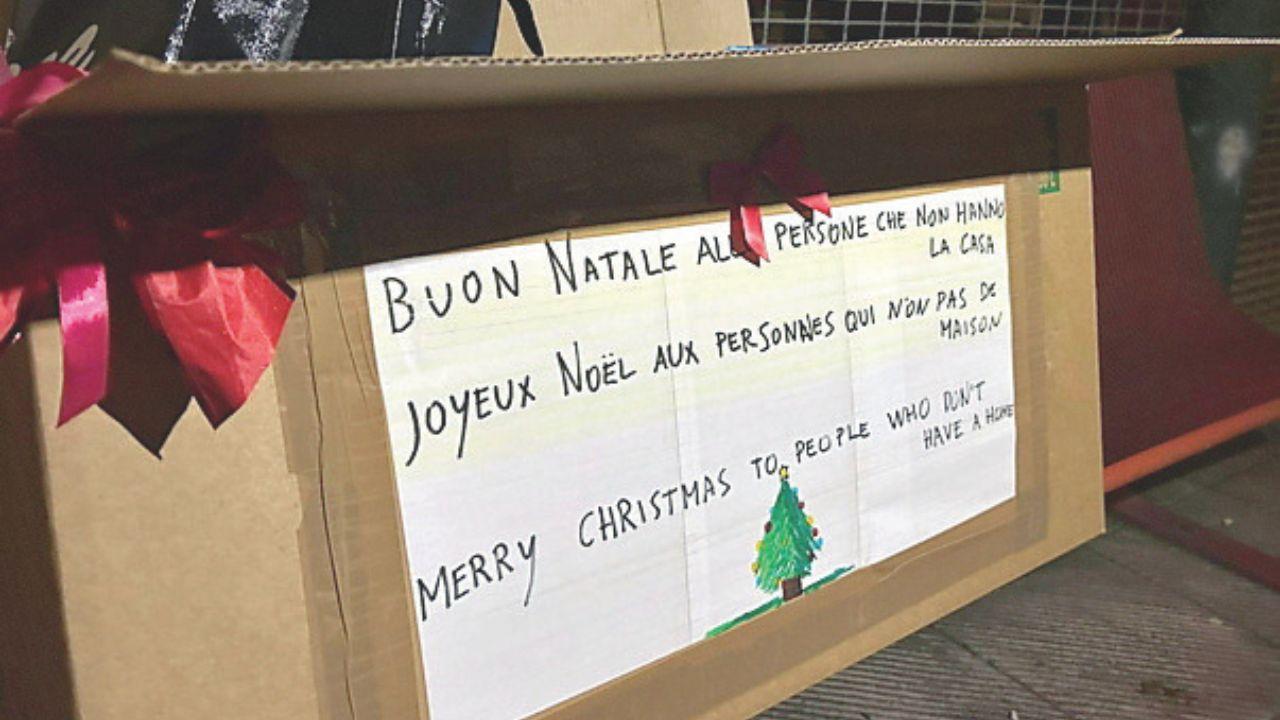 BUON NATALE PERSONE CHE NON HANNO
LA CASA
JOYEUX NOËL AUX PERSONNES QUI N'ON PAS DE
MAISON
MERRY CHRISTMAS TO PEOPLE WHO DON'T
HAVE A HOME